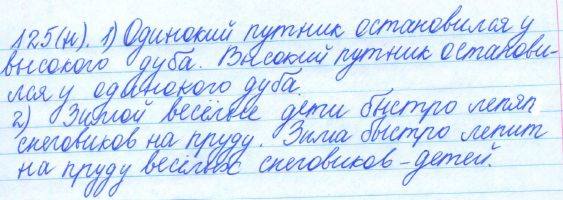 125(н). 1) Одинокий путник остановился у
высокого дуба. Высокий путник останови-
лся у одинокого дуба.
2) Зимой весёлые дети быстро лепят
снеговиков на пруду. Зима быстро лепит
на пруду весёлых снеговиков-детей.